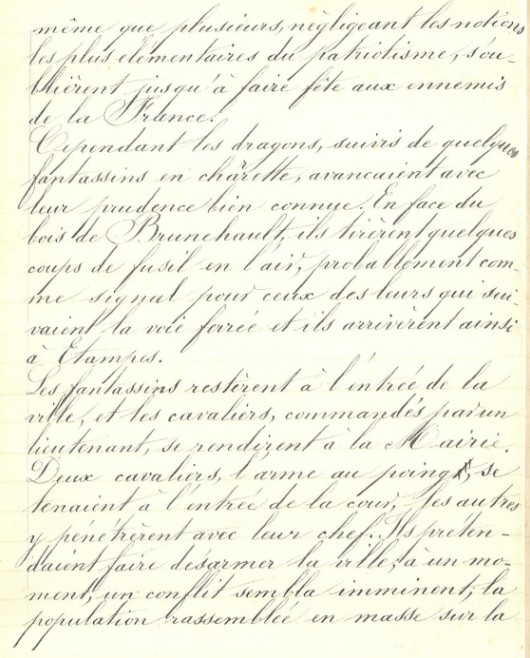 même que plusieurs, négligeant les notions
les plus élémentaires du patriotisme, s'ou-
blièrent jusqu'à faire fête aux ennemis
de la France.
Cependant les dragons, suivis de quelques
fantassins en charette, avancaient avec
leur prudence bien connue. En face du
bois de Brunehault, ils tirèrent quelques
coups de fusil en l'air, probablement com-
me signal pour ceux des leurs qui sui-
vaient la voie ferrée et ils arrivèrent ainsi
à Etampes.
Les fantassins restèrent à l'entrée de la
ville, et les cavaliers, commandés par un
lieutenant, se rendirent à la Mairie.
Deux cavaliers, l'arme au poing, se
tenaient à l'entrée de la cour, les autres
y pénétrèrent avec leur chef. Ils préten-
daient faire désarmer la ville; à un mo-
ment, un conflit sembla imminent; la
population rassemblée en masse sur la